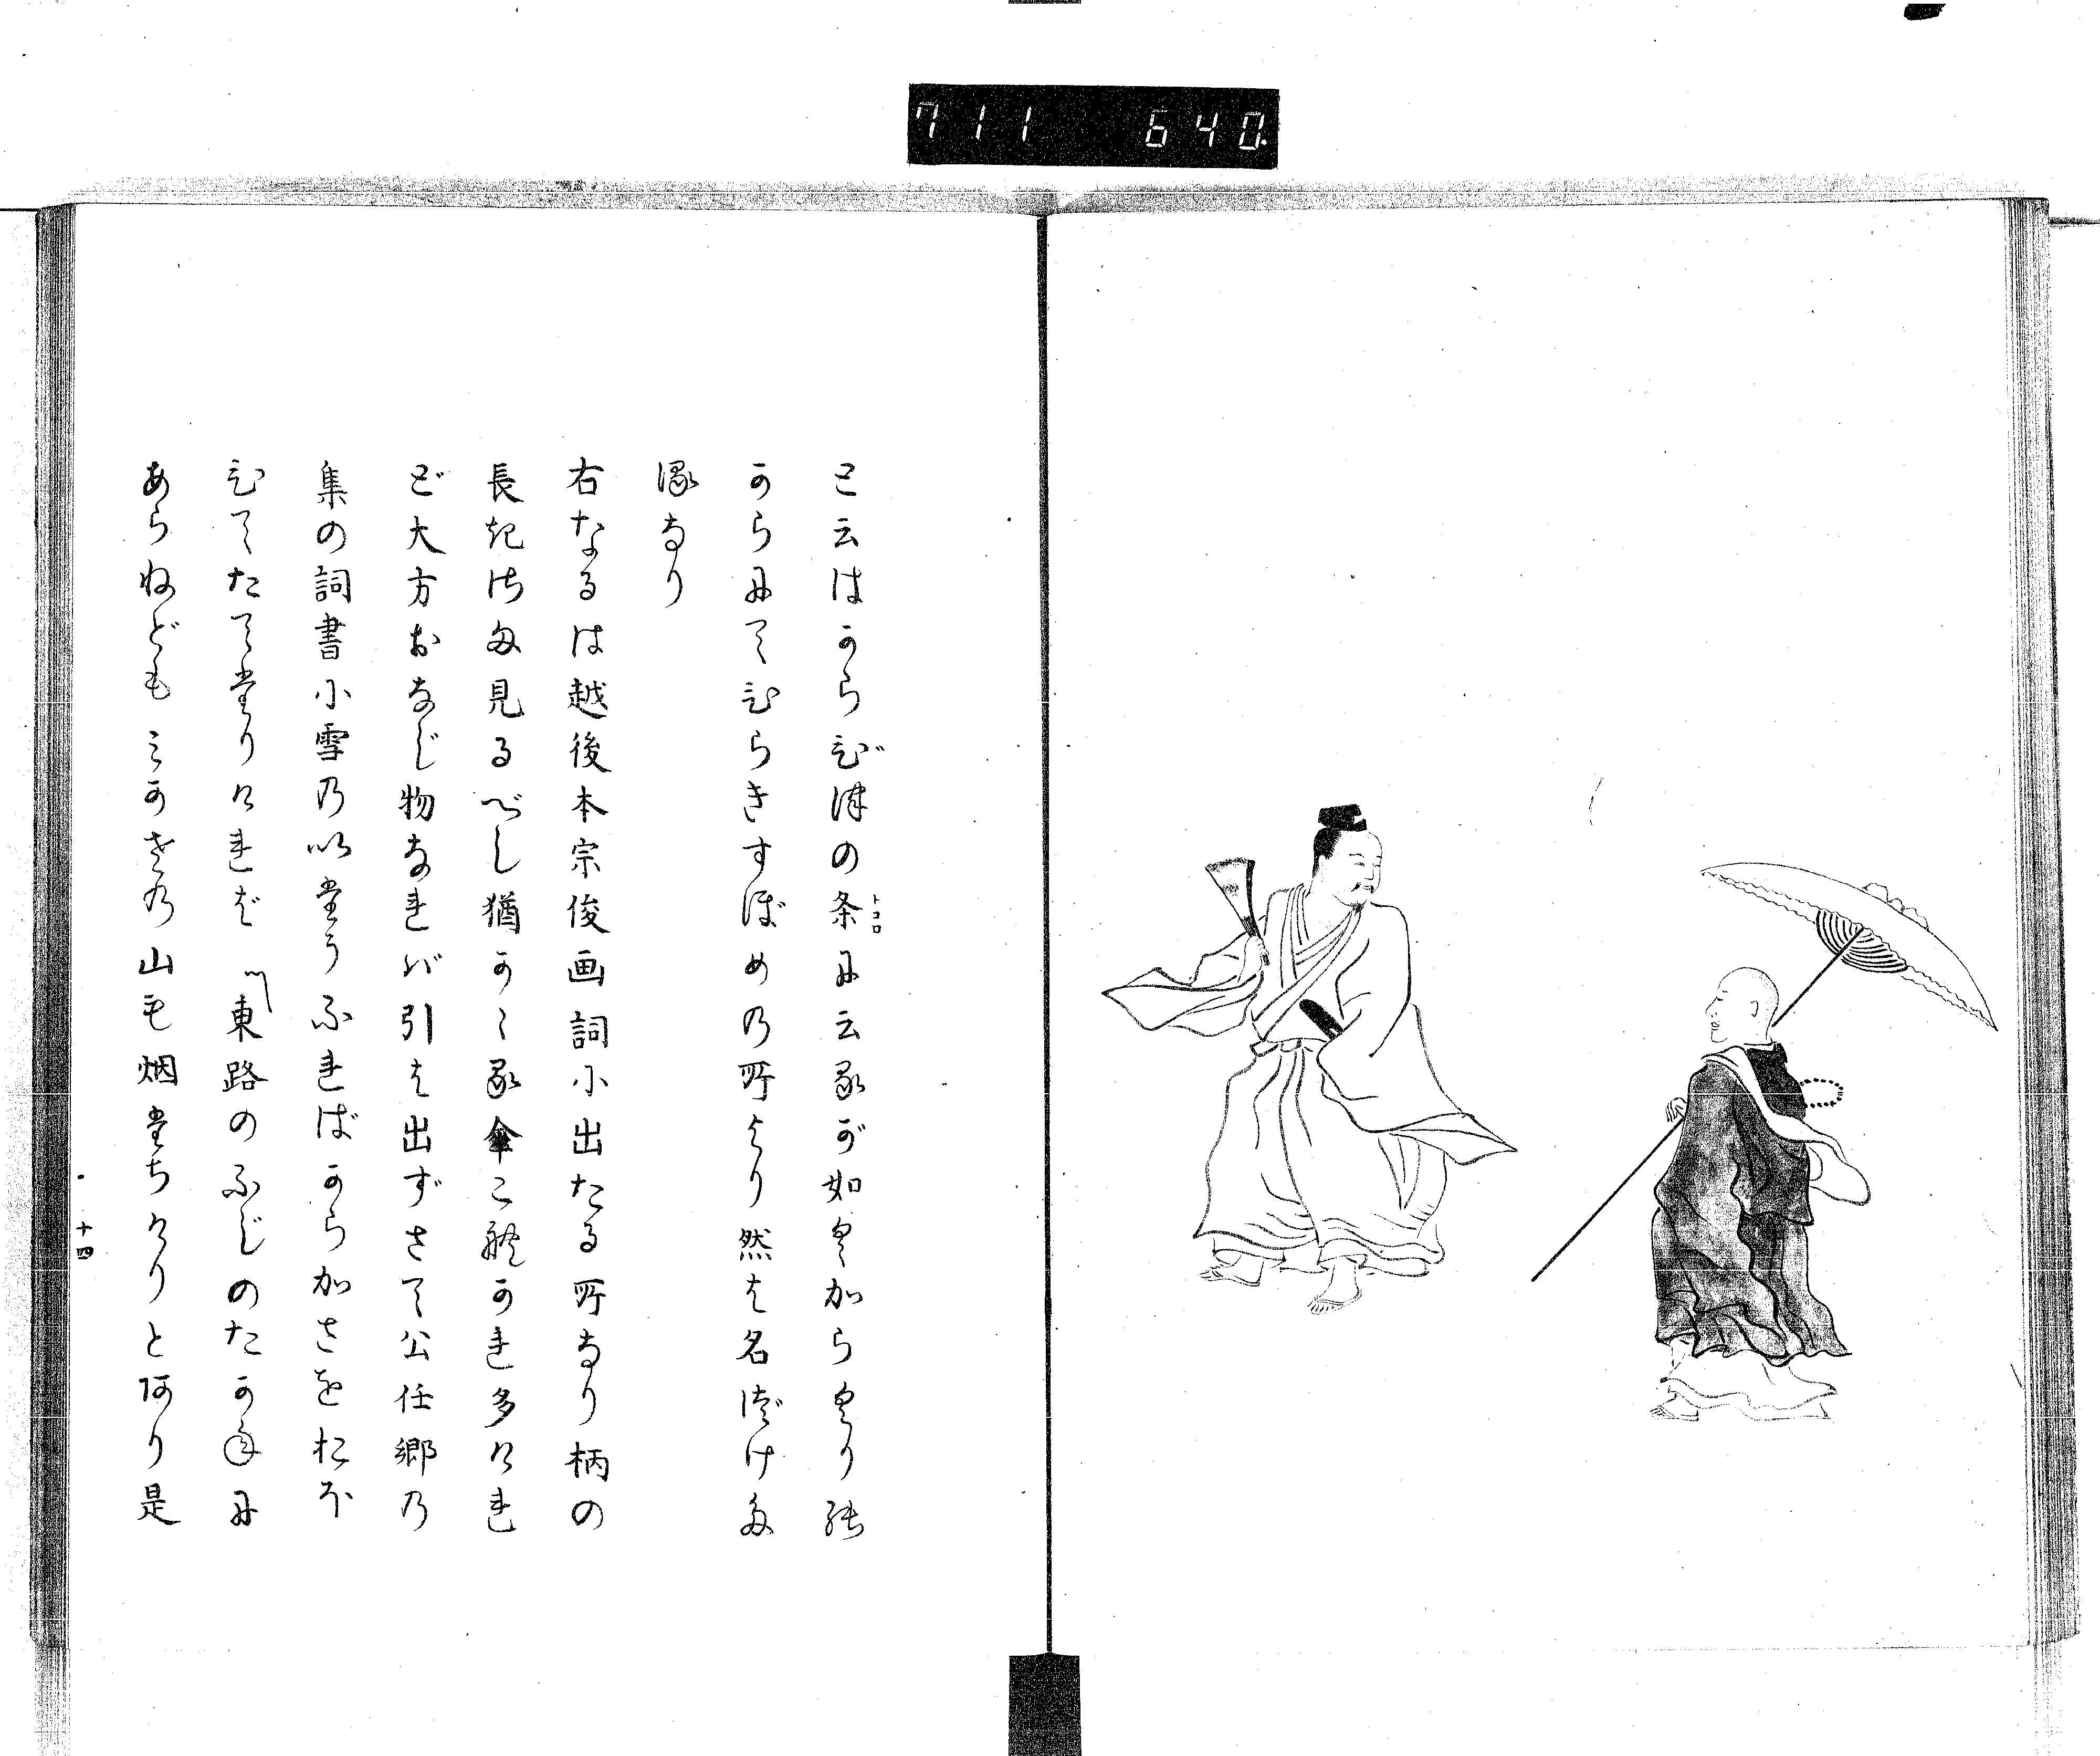 711 640.
と云はからびつの条に云るが如くからくり
トコロ
からにてひらきすぼめの所より然は名づけた
るなり
右なるは越後本宗俊画詞に出たる所なり柄の
長きさま見るべし猶かゝる傘これかれ多けれ
ど大方おなじ物なれバ引は出ずさて公任郷の
集の詞書に雪のいたうふればからかさをおほ
ひてたてたりければ 東路のふじのたかねに
あらねどもミかさの山も烟たちけりとあり是
十四